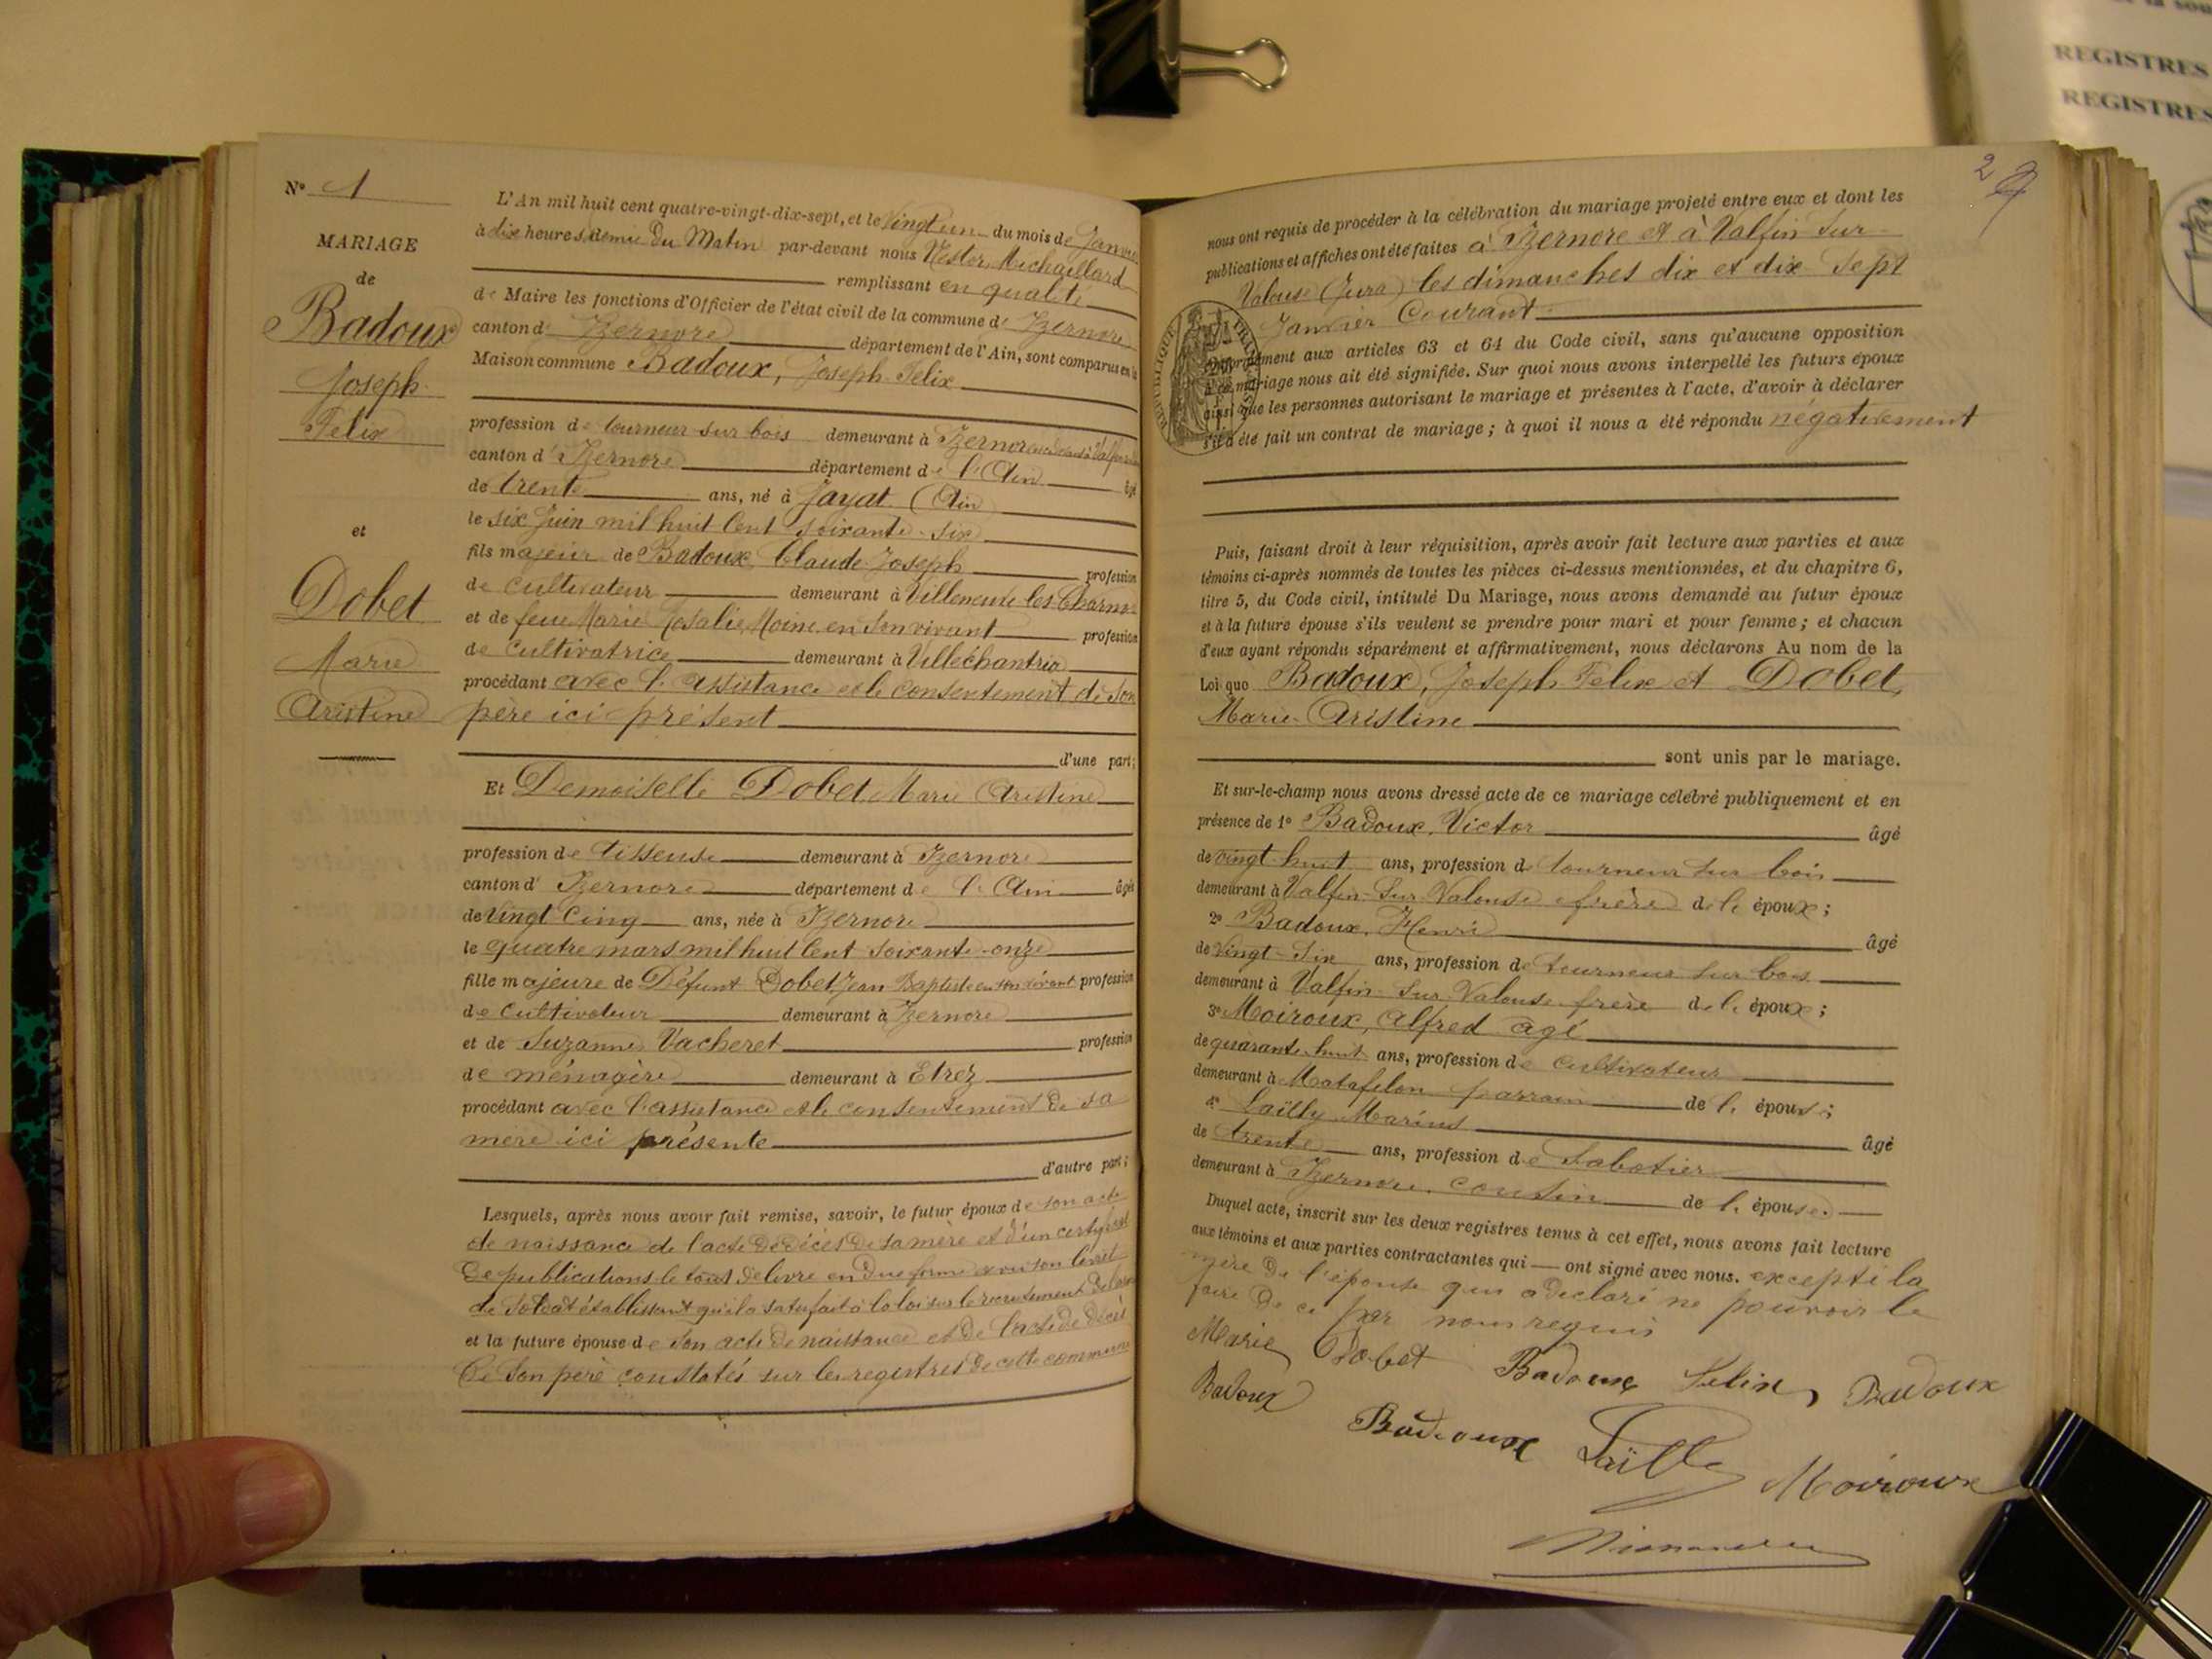 N° 1
MARIAGE
de
Badoux
Joseph
Felix
et
Dobet
Marie
Aristine
L'An mil huit cent quatre-vingt-dix-sept, et le vingt un du mois de Janvier
à dix heures & demie du Matin par-devant nous Nestor Michaillard
remplissant en qualité
de Maire les fonctions d'Officier de l'état civil de la commune d' Izernore
canton d' Izernore département de l'Ain, sont comparus en la
Maison commune Badoux, Joseph Felix
profession de tourneur sur bois demeurant à Izernore
canton d' Izernore département de l'Ain âgé
de trente ans, né à Jayat (Ain)
le six Juin mil huit Cent soixante-six
fils majeur de Badoux Claude Joseph profession
de Cultivateur demeurant à Villeneuve les Charnod
et de feue Marie Rosalie Moine en son vivant profession
de Cultivatrice demeurant à Villechantria
procédant avec l'assistance et le consentement de son
père ici présent
d'une part;
Et Demoiselle Dobet Marie Aristine
profession de tisseuse demeurant à Izernore
canton d' Izernore département de l'Ain âgée
de Vingt Cinq ans, née à Izernore
le quatre mars mil huit Cent soixante-onze
fille majeure de Défunt Dobet Jean Baptiste en son vivant profession
de Cultivateur demeurant à Izernore
et de Suzanne Vacheret profession
de ménagère demeurant à Etrez
procédant avec l'assistance et le consentement de sa
mère ici présente
d'autre part;
Lesquels, après nous avoir fait remise, savoir, le futur époux de son acte
de naissance de l'acte de décès de sa mère et d'un certificat
de publications le tout délivré en due forme & vu son livret
de soldat établissant qu'il a satisfait à la loi sur le recrutement de
et la future épouse de son acte de naissance et de l'acte de décès
de son père constatés sur les registres de cette commune
2
nous ont requis de procéder à la célébration du mariage projeté entre eux et dont les
publications et affiches ont été faites à Izernore et à Valfin sur
Valouse (Jura) les dimanches dix et dix-sept
Janvier Courant
Conformément aux articles 63 et 64 du Code civil, sans qu'aucune opposition
à ce mariage nous ait été signifiée. Sur quoi nous avons interpellé les futurs époux
ainsi que les personnes autorisant le mariage et présentes à l'acte, d'avoir à déclarer
s'il a été fait un contrat de mariage; à quoi il nous a été répondu négativement
RÉPUBLIQUE FRANÇAISE
Puis, faisant droit à leur réquisition, après avoir fait lecture aux parties et aux
témoins ci-après nommés de toutes les pièces ci-dessus mentionnées, et du chapitre 6,
titre 5, du Code civil, intitulé Du Mariage, nous avons demandé au futur époux
et à la future épouse s'ils veulent se prendre pour mari et pour femme; et chacun
d'eux ayant répondu séparément et affirmativement, nous déclarons Au nom de la
Loi que Badoux, Joseph Felix et Dobet,
Marie-Aristine
sont unis par le mariage.
Et sur-le-champ nous avons dressé acte de ce mariage célébré publiquement et en
présence de 1° Badoux, Victor âgé
de vingt huit ans, profession de tourneur sur bois
demeurant à Valfin-sur-Valouse frère de l' époux;
2° Badoux, Henri âgé
de vingt-six ans, profession de tourneur sur bois
demeurant à Valfin-sur-Valouse frère de l' époux;
3° Moiroux, Alfred agé
de quarante-huit ans, profession de cultivateur
demeurant à Matafelon parrain de l' épouse;
4° Laïlly Marius âgé
de trente ans, profession de Sabotier
demeurant à Izernore, cousin de l' épouse.
Duquel acte, inscrit sur les deux registres tenus à cet effet, nous avons fait lecture
aux témoins et aux parties contractantes qui ont signé avec nous. excepté la
mère de l'épouse qui a déclaré ne pouvoir le
faire de ce par nous requis
Marie Dobet Badoux Felix, Badoux
Badoux
Badoux Laïlly Moiroux
REGISTRES
REGISTRES